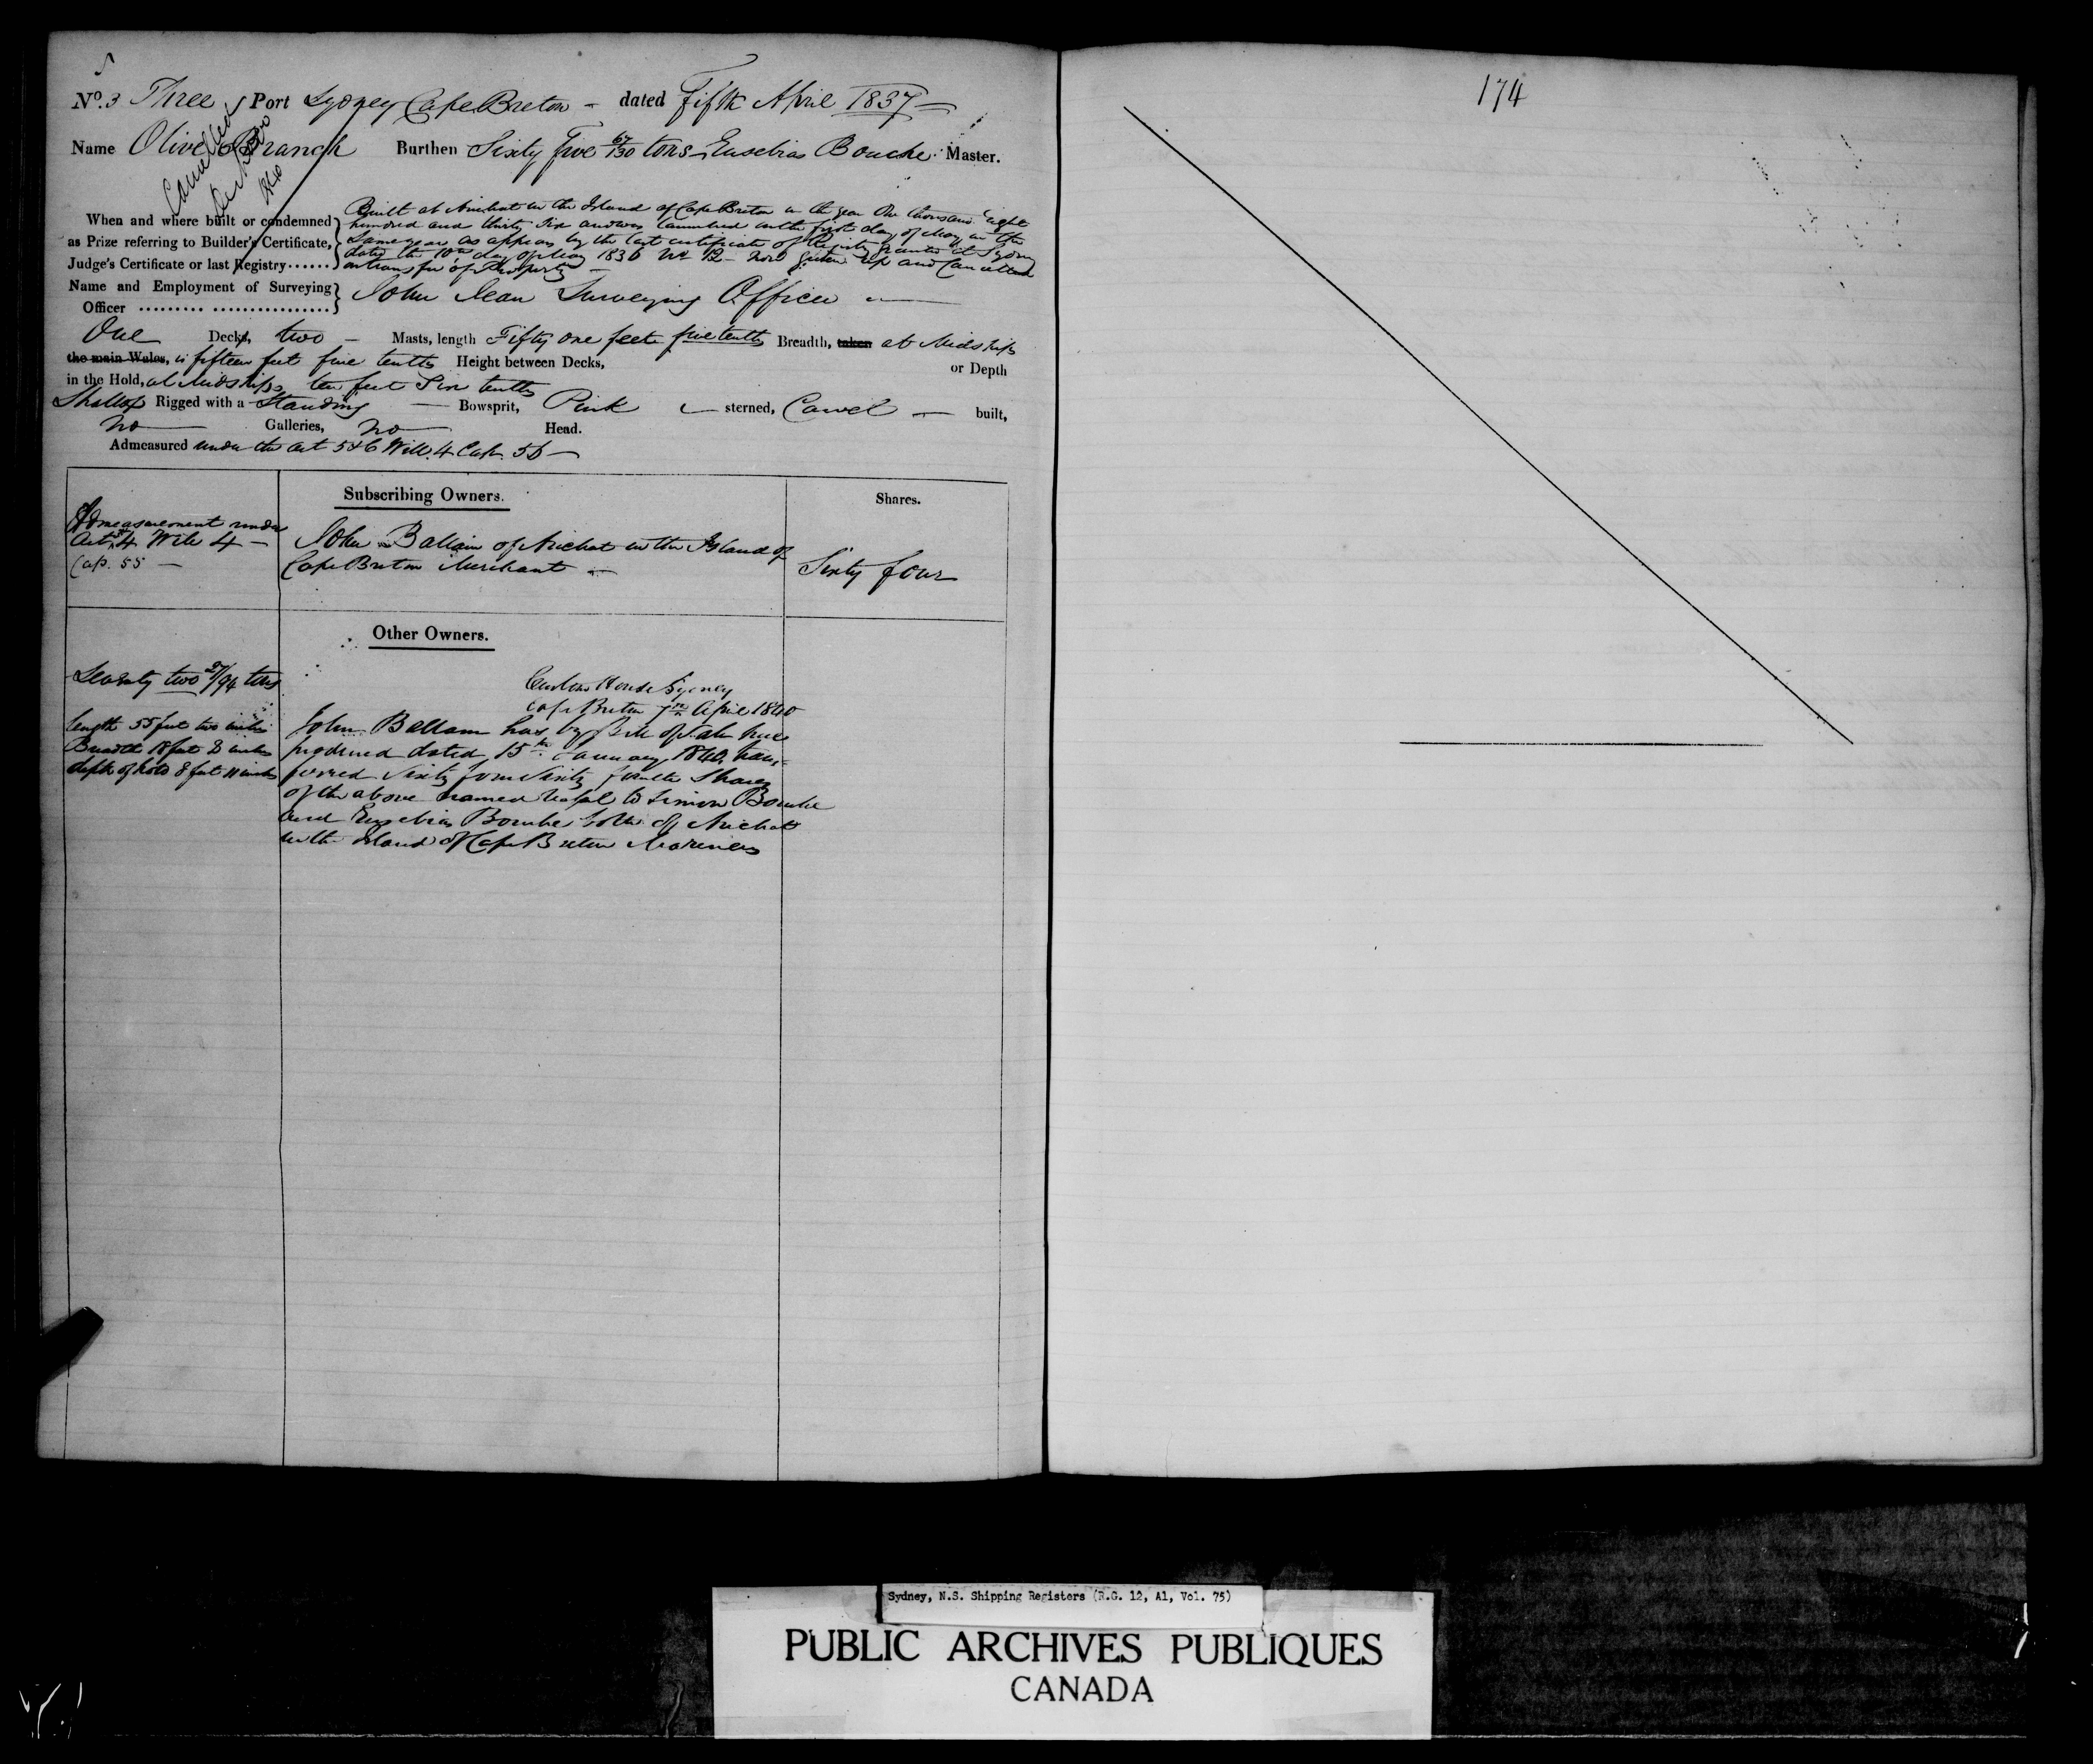 No. 3 Three Port Sydney Cape Breton - dated Fifth April 1837
Name Olive Branch Burthen Sixty five tons Eusebias Bouche Master.
Cancelled
When and where built or condemned
as Prize referring to Builder's Certificate,
Judge's Certificate or last Registry......
Built at Arichat in the Island of Cape Breton in the year One thousand Eight
hundred and thirty Six and was launched on the first day of May in the
Same year as appears by the last certificate of Registry granted at Sydney
dated the 10th day of May 1836 No 12 - now given up and Cancelled
on transfer of Property
Name and Employment of Surveying
Officer
John Jean Surveying Officer
One Decks, two - Masts, length Fifty one feet five tenths Breadth, taken at Midships
the main Wales, is fifteen feet five tenths Height between Decks, or Depth
in the Hold, at Midships ten feet Six tenths
Shallop Rigged with a Standing Bowsprit, Pink sterned, Carvel built,
no Galleries, no Head.
Admeasured under the act 5 & 6 Will. 4 Cap. 56
Subscribing Owners. Shares.
Admeasurement under
Act Will 4
Cap. 55
John Ballam of Arichat in the Island of
Cape Breton Merchant
Sixty four
Other Owners.
Seventy two 27/94 tons
length 55 feet two inches
Breadth 18 feet 8 inches
depth of hold 8 feet 11 inches
Custom House Sydney
Cape Breton April 1840
John Ballam has by Bill of Sale here
produced dated 15th January 1840, trans-
ferred Sixty four Sixty fourths Shares
of the above named Vessel to Simon Bouche
and Eusebias Bouche both of Arichat
in the Island of Cape Breton Mariners
174
Sydney, N.S. Shipping Registers (R.G. 12, A1, Vol. 75)
PUBLIC ARCHIVES PUBLIQUES
CANADA